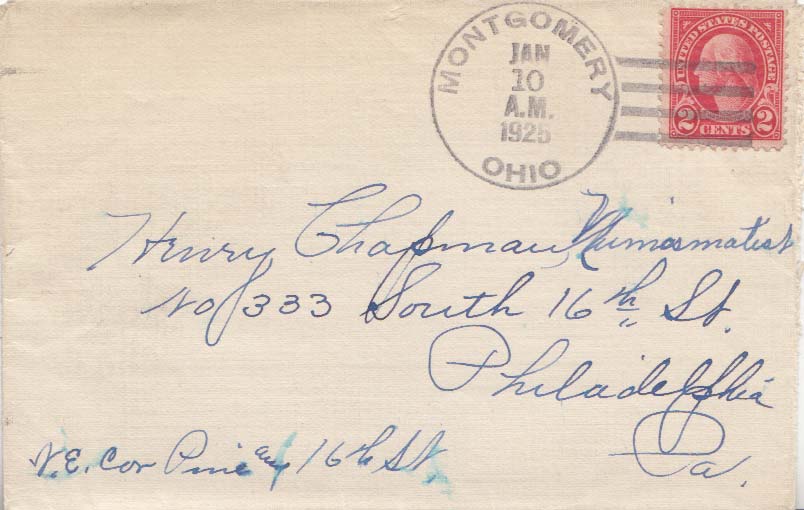 MONTGOMERY
JAN
10
A.M.
1925
OHIO
UNITED STATES POSTAGE
2 CENTS 2
Henry Chapman, Numismatist
No 333 South 16th St.
Philadelphia
Pa.
N.E. Cor Pine and 16th St.